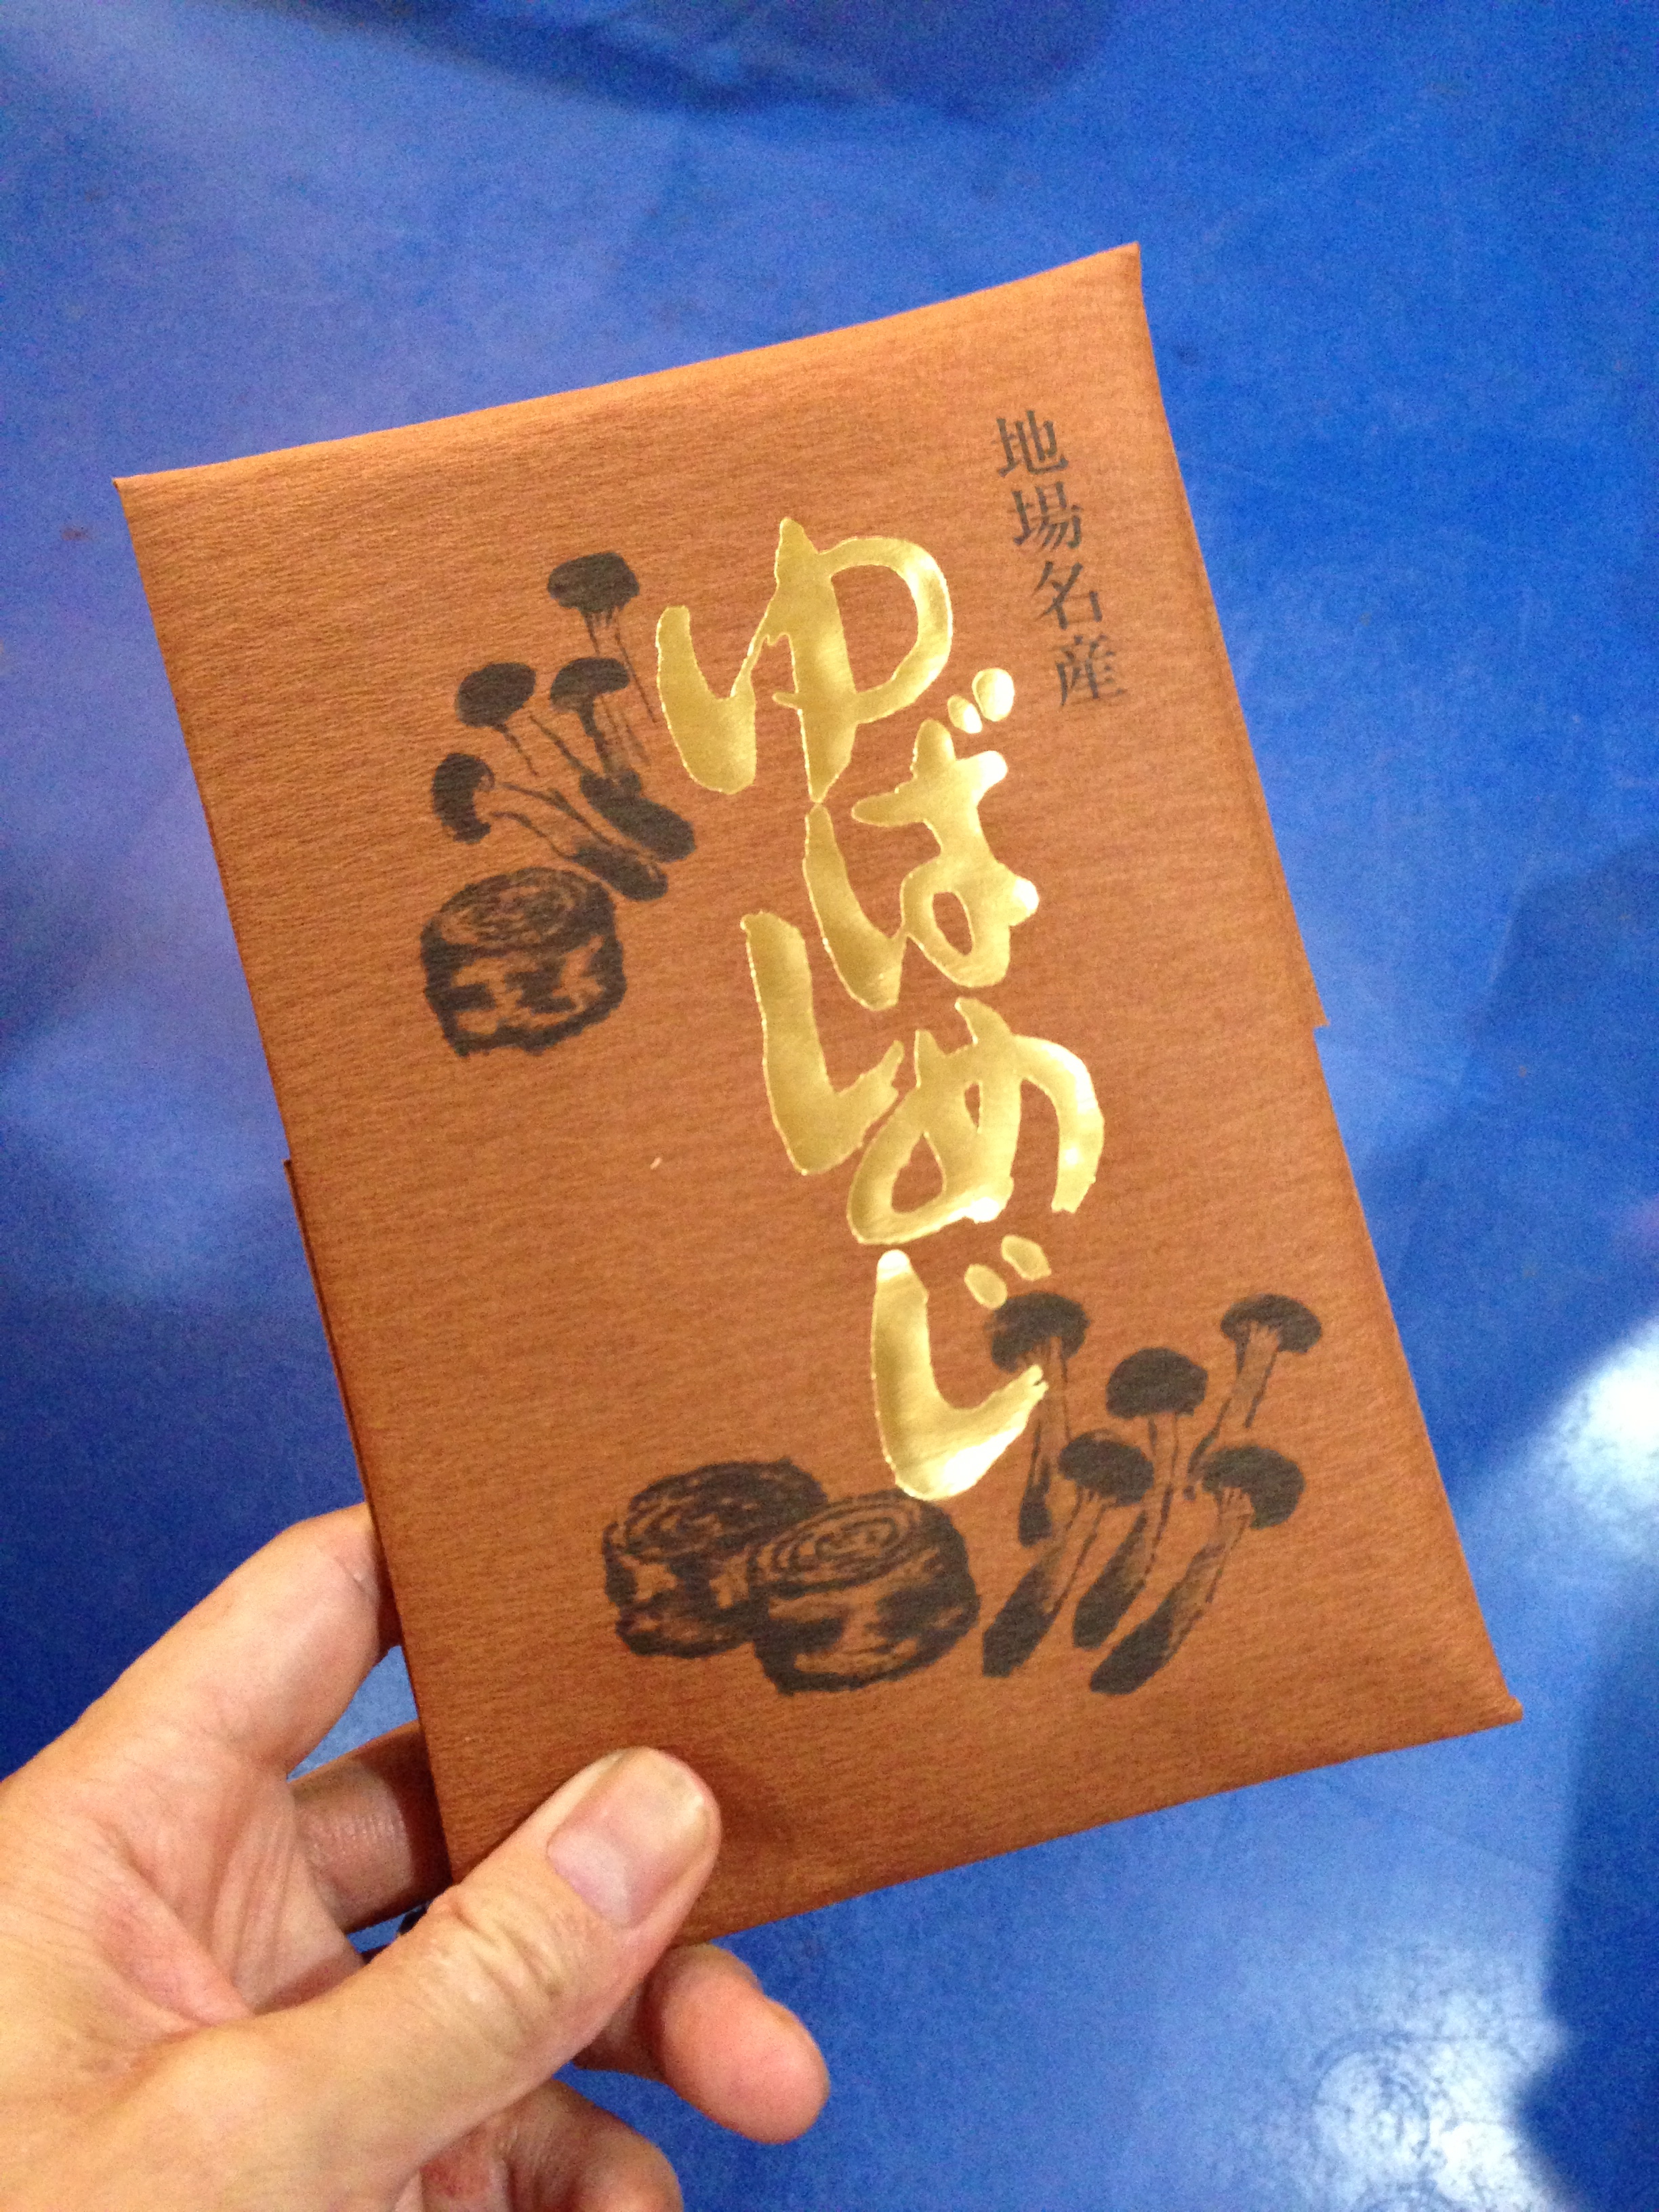 地場名産
ゆばしめじ